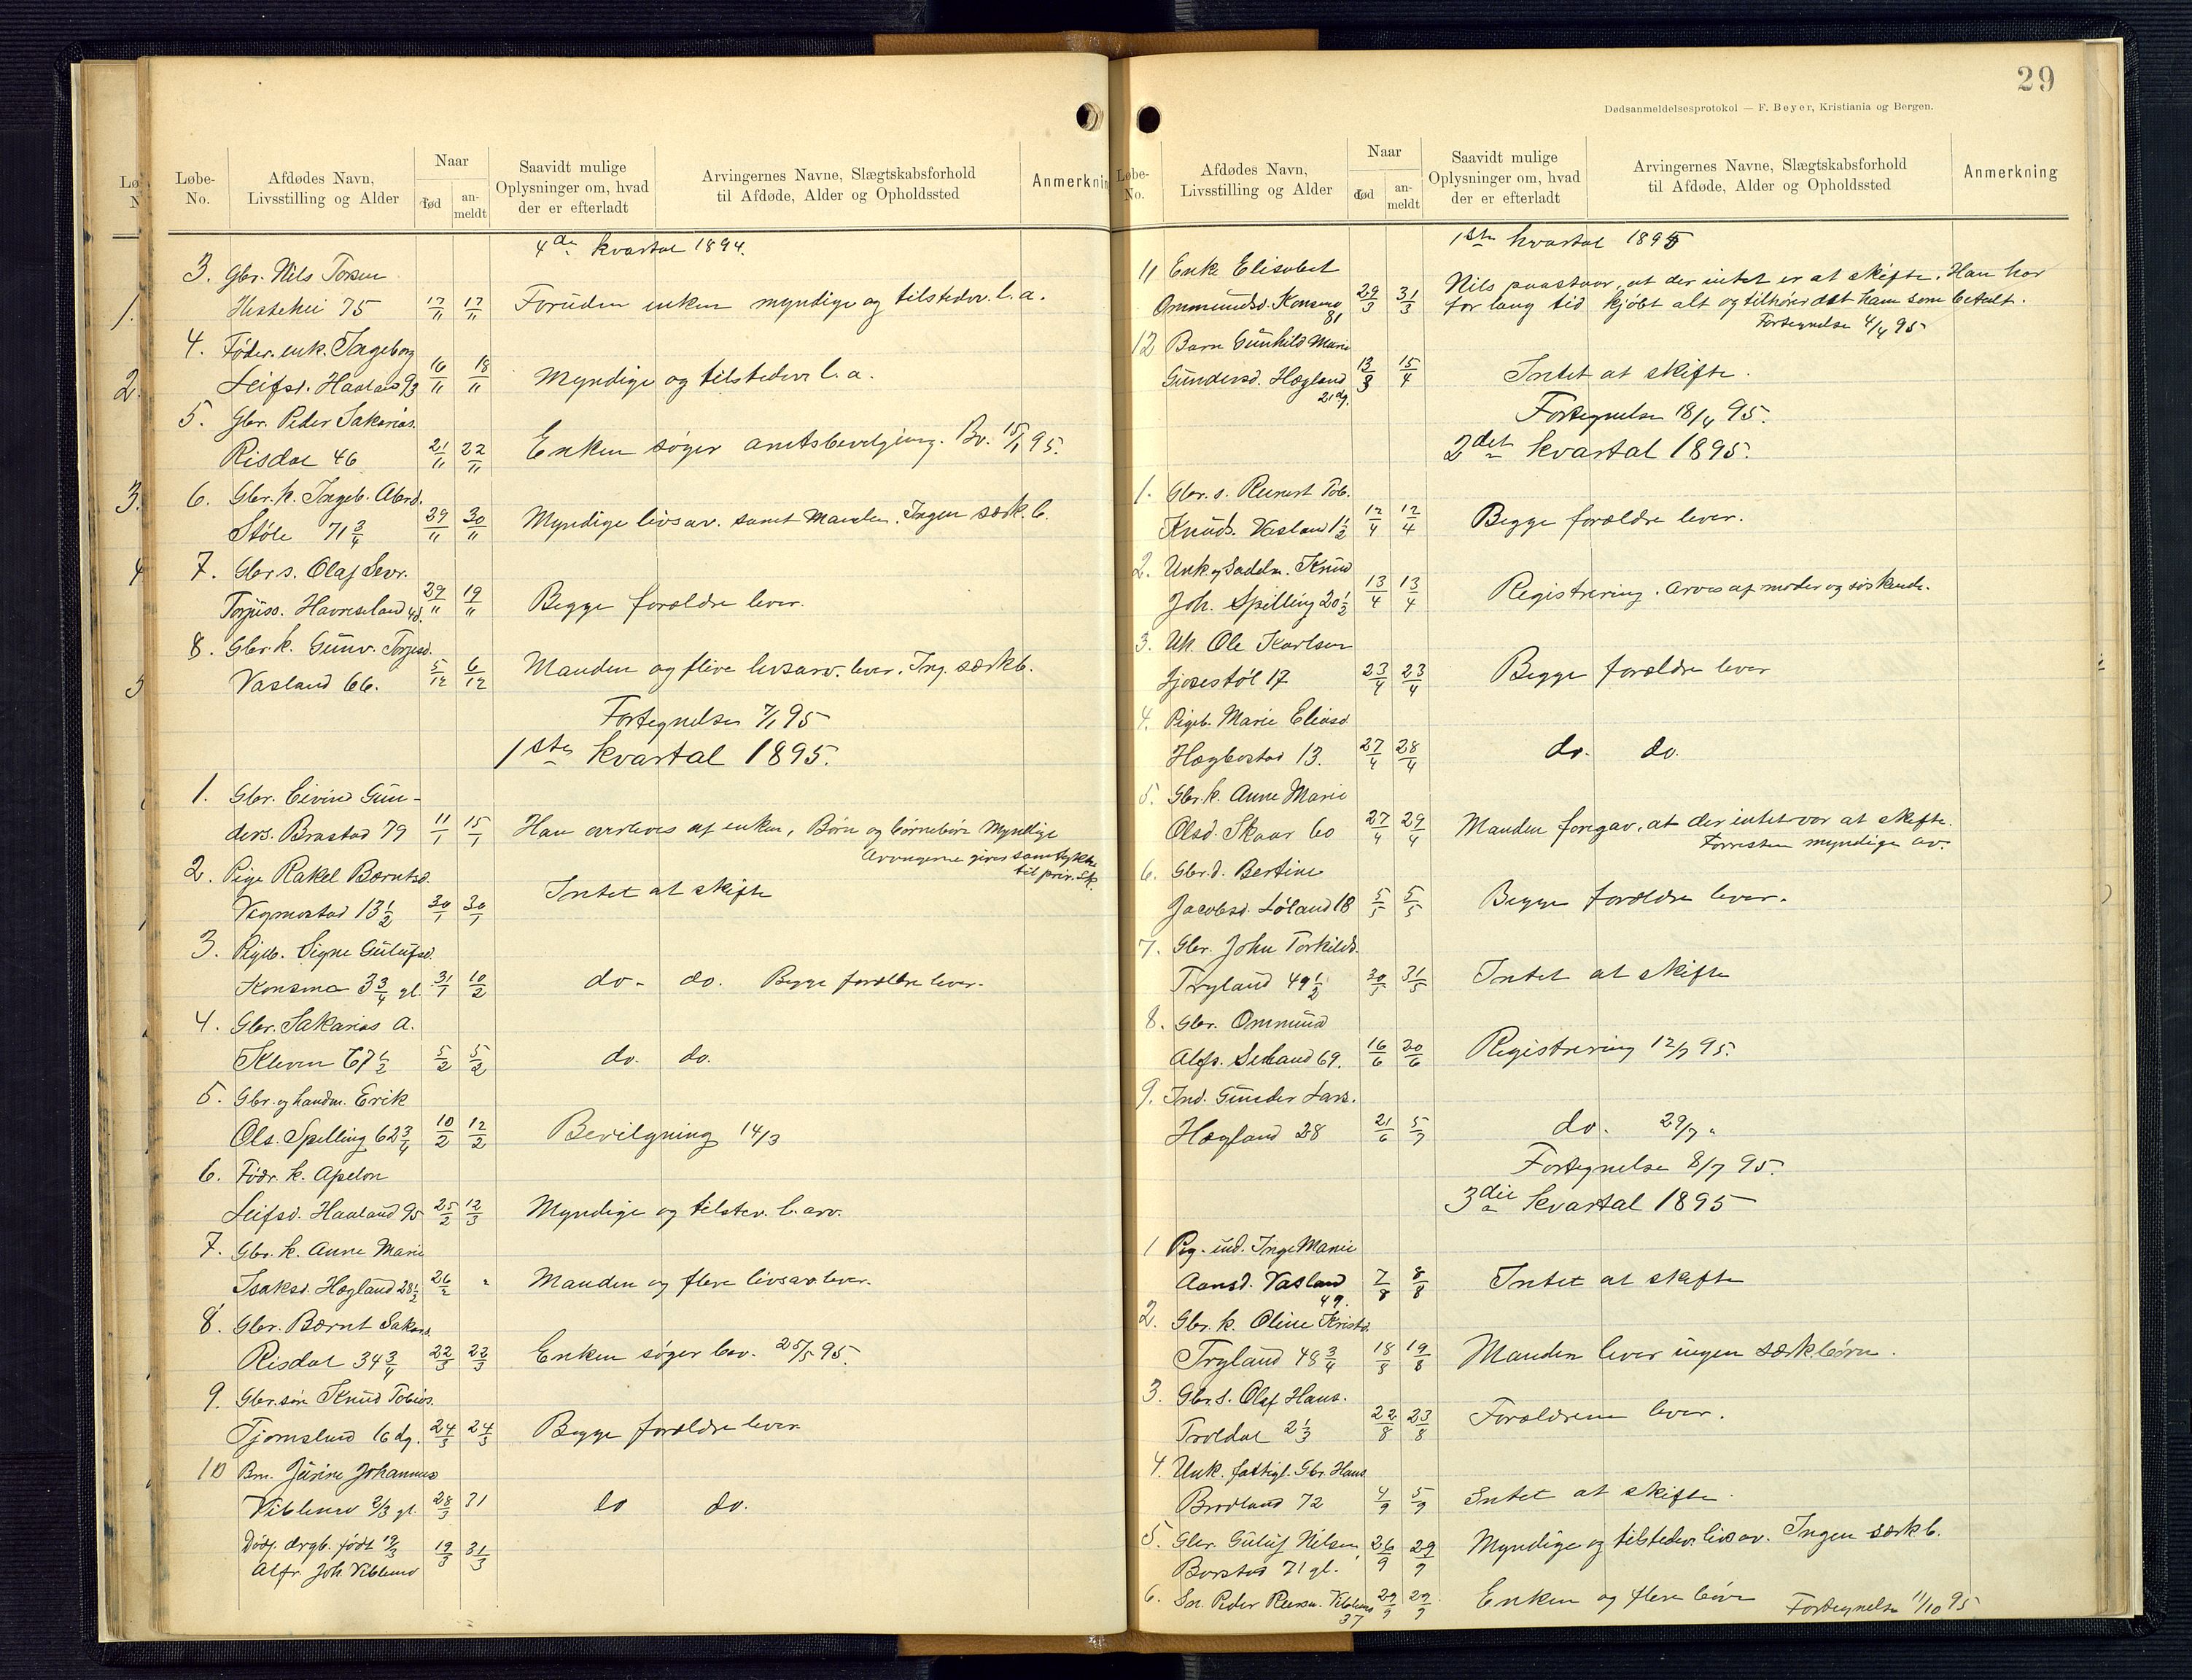 Løbe-No.
Afdødes Navn, Livsstilling og Alder
Naar
død
an-meldt
Saavidt mulige Oplysninger om, hvad der er efterladt
Arvingernes Navne, Slægtskabsforhold til Afdøde, Alder og Opholdssted
Anmerknin
4de kvartal 1894.
3. Gbr. Nils Torsen
75 17/11 17/11 Foruden enken myndige og tilstedev. l. a.
4. Føder. enk. Ingeborg
Leifsd. Haaland 93 16/11 18/11 Myndige og tilstedev. l. a.
5. Gbr. Peder Sakarias.
Risdal 46 21/11 22/11 Enken søger amtsbevilgning. Bv. 15/1 95.
6. Gbr. k. Ingeb. Abrd.
Støle 71 3/4 29/11 30/11 Myndige livsarv. samt Manden. Ingen særk. b.
7. Gbr s. Olaf Sevr.
Torjuss. Havreseland 4d. 29/11 19/11 Begge forældre lever.
8. Gbr. k. Gunv. Torjusd.
Vasland 66. 5/12 6/12 Manden og flere livsarv. lever. Ing. særkb.
Fortegnelse 7/1 95
1ste kvartal 1895.
1. Gbr. Eivind Gun-
ders. Brastad 79 11/1 15/1 Han arves af enken, Børn og børnebørn Myndige
Arvingerne giver samtykke
til priv. sk.
2. Pige Rakel Berntsd.
Vigmostad 13 1/2 30/1 30/1 Intet at skifte
3. Pigeb. Signe Gulufsd.
Konsmo 3 3/4 gl. 31/1 10/2 do- do. Begge forældre lever.
4. Gbr. Sakarias A.
Kleven 67 1/2 5/2 5/2 do. do.
5. Gbr. og handm. Erik
Ols. Spilling 62 3/4 10/2 12/2 Bevilgning 14/3
6. Fødr. k. Apelon
Leifsd. Haaland 95 25/2 12/3 Myndige og tilstev. l. arv.
7. Gbr. k. Anne Marie
Isaksd. Høgland 28 1/2 26/2 " Manden og flere livsarv. lever.
8. Gbr. Bernt Sakars.
Risdal 34 3/4 22/3 22/3 Enken søger bev. 25/5 95.
9. Gbr. søn Knud Tobias.
Tjomsland 16 dg. 24/3 24/3 Begge forældre lever
10 Brn. Jurine Johannes
Viblemo 2/3 gl. 28/3 31 do do.
Dødf. drgb. født 19/3 19/3 31/3
Alfr. Joh. Viblemo
29
Dødsanmeldelsesprotokol — F. Beyer, Kristiania og Bergen.
Løbe-No.
Afdødes Navn, Livsstilling og Alder
Naar
død
an-meldt
Saavidt mulige Oplysninger om, hvad der er efterladt
Arvingernes Navne, Slægtskabsforhold til Afdøde, Alder og Opholdssted
Anmerkning
1ste kvartal 1895
11 Enke Elisabet
Ommundsd. Konsmo 81 29/3 31/3 Nils paastaar, at der intet er at skifte. Han har
for lang tid kjøbt alt og tilhører det ham som betalt.
Fortegnelse 4/4 95
12 Barn Gunhild Marie
Gundersd. Høgland 21 dg. 13/3 15/4 Intet at skifte.
Fortegnelse 18/4 95.
2det kvartal 1895.
1. Gbr. s. Reinert Tob.
Knuds. Vasland 1 1/2 12/4 12/4 Begge forældre lever.
2. Unk. og Sadelm. Knud
Joh. Spilling 20 1/2 13/4 13/4 Registrering. Arves af moder og søskende.
3. Uk. Ole Karlsen
Ljosestøl 17 23/4 23/4 Begge forældre lever
4. Pigeb. Marie Eliasd.
Hægbostad 13. 27/4 28/4 do. do.
5. Gbr. k. Anne Marie
Olsd. Skaar 60 27/4 29/4 Manden foregav, at der intet var at skifte.
Forresten myndige arv.
6. Gbr. d. Bertine
Jacobsd. Løland 18 5/5 5/5 Begge forældre lever.
7. Gbr. John Torkilds.
Tryland 49 1/2 30/5 31/5 Intet at skifte
8. Gbr. Ommund
Alfs. 69. 16/6 20/6 Registrering 12/7 95.
9. Ind. Gunder Lars.
Høgland 28 21/6 5/7 do. 29/7 "
Fortegnelse 8/7 95.
3die kvartal 1895
1 Pig. ind. Inge Marie
Aansd. Vasland 49. 7/8 8/8 Intet at skifte
2. Gbr. k. Oline Kristd.
Tryland 48 3/4 18/8 19/8 Manden lever ingen særkbørn.
3. Gbr. s. Olaf Hans.
Troldal 2 1/3 22/8 23/8 Forældrene lever.
4. Unk. fattigl. Gbr. Hans
Brodland 72 4/9 5/9 Intet at skifte.
5. Gbr. Guluf Nilsen
71 gl. 26/9 29/9 Myndige og tilstedev. livsarv. Ingen særkb.
6. Sn. Peder Reiers. Viblemo 37 29/9 29/9 Enken og flere børn Fortegnelse 11/10 95